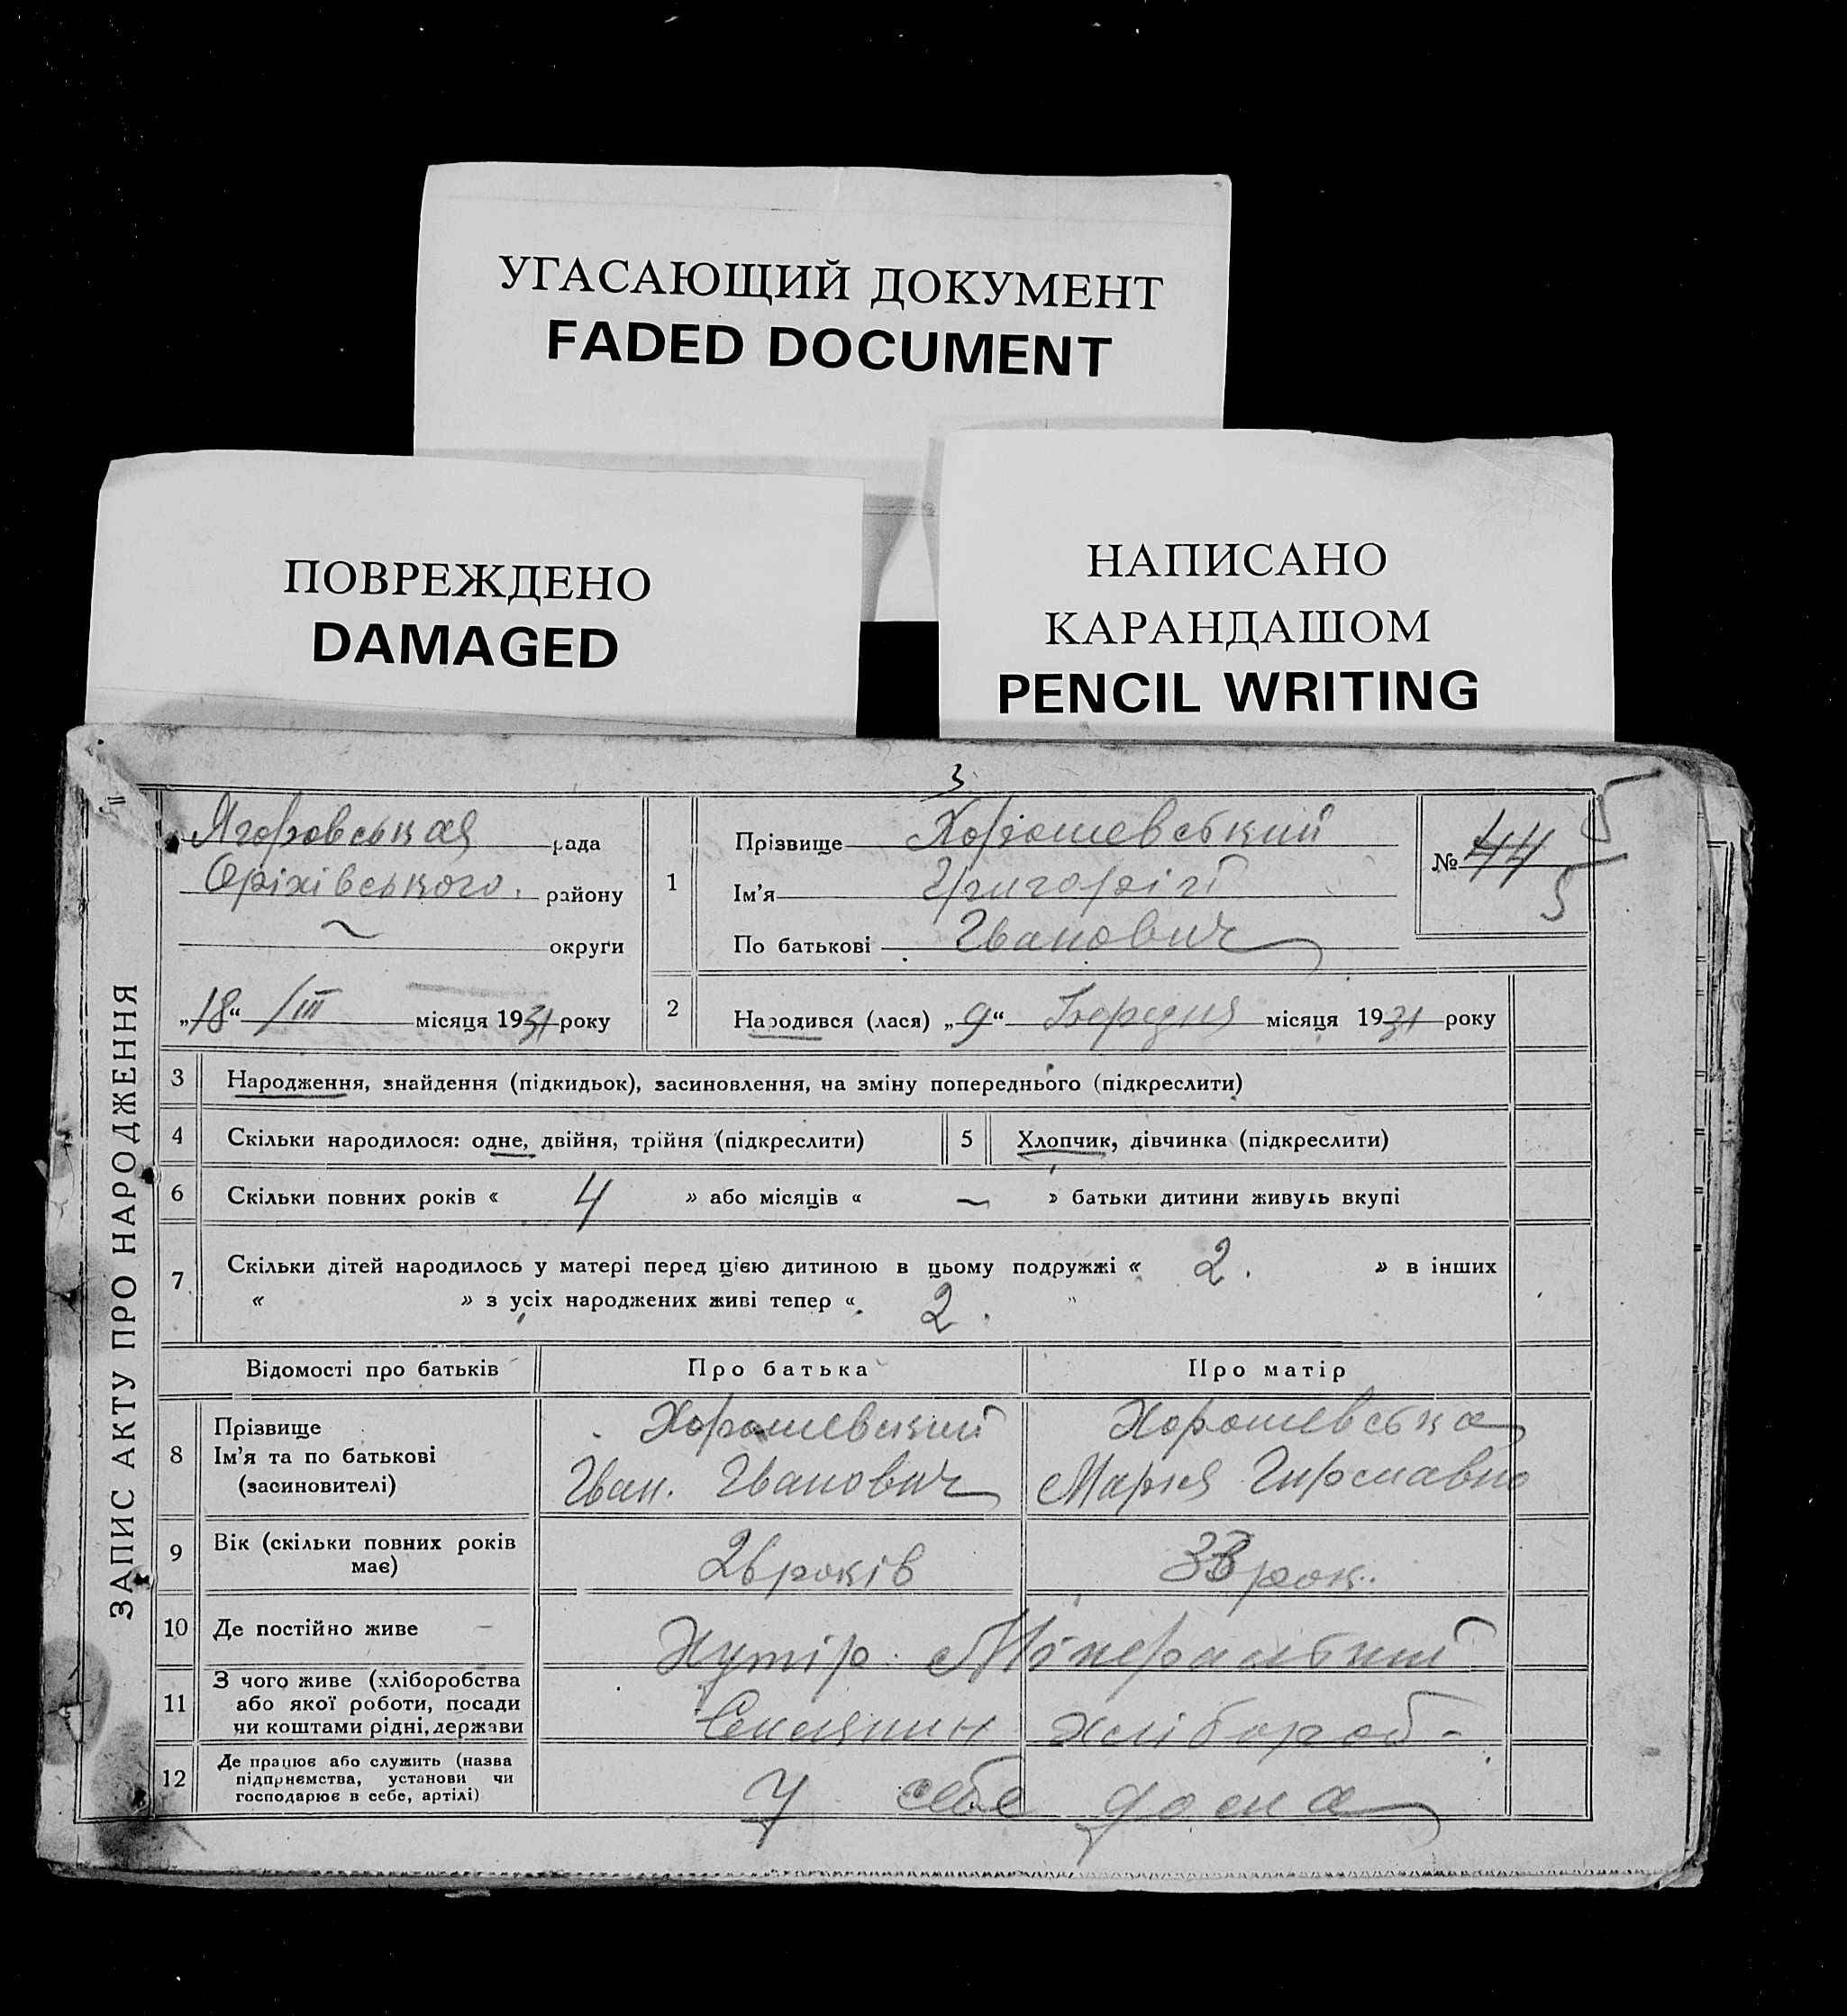 УГАСАЮЩИЙ ДОКУМЕНТ
FADED DOCUMENT
ПОВРЕЖДЕНО
DAMAGED
НАПИСАНО
КАРАНДАШОМ
PENCIL WRITING
3
ЗАПИС АКТУ ПРО НАРОДЖЕННЯ
Ягоровськая рада
Оріхівського району
~ округи
„18“ /III місяця 1931 року
1
Прізвище Хорошевський
Ім'я Григорій
По батькові Іванович
№ 44
5
5
2 Народився (лася) „9“ Березня місяця 1931 року
3 Народження, знайдення (підкидьок), засиновлення, на зміну попереднього (підкреслити)
4 Скільки народилося: одне, двійня, трійня (підкреслити) 5 Хлопчик, дівчинка (підкреслити)
6 Скільки повних років « 4 » або місяців « — » батьки дитини живуть вкупі
7 Скільки дітей народилось у матері перед цією дитиною в цьому подружжі « 2. » в інших
« » з усіх народжених живі тепер « 2. "
Відомості про батьків Про батька Про матір
8 Прізвище Хорошевский Хорошевська
Ім'я та по батькові Іван. Іванович Мария
(засиновителі)
9 Вік (скільки повних років має) 26 років 33 рок.
10 Де постійно живе Хутір Мінеральний
11 З чого живе (хліборобства
або якої роботи, посади
чи коштами рідні, держави Селянин хлібороб-
12 Де працює або служить (назва
підприємства, установи чи
господарює в себе, артілі) У себе дома